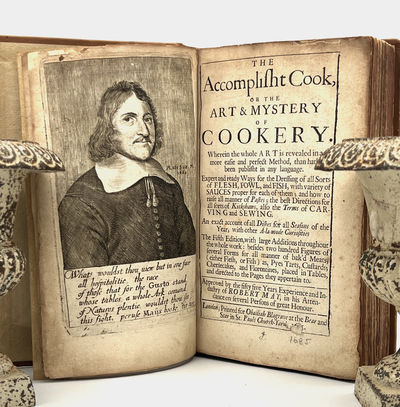 What! wouldst thou view but in one face
all hospitalitie, the race
of those that for the Gusto stand,
whose tables a whole Ark comand
of Natures plentie, wouldst thou see
this sight, peruse Mais booke, tis hee
THE
Accomplisht Cook,
OR THE
ART & MYSTERY
OF
COOKERY.
Wherein the whole ART is revealed in a
more easie and perfect Method, than hath
been publisht in any language.
Expert and ready Ways for the Dressing of all Sorts
of FLESH, FOWL, and FISH, with variety of
SAUCES proper for each of them; and how to
raise all manner of Pastes; the best Directions for
all sorts of Kickshaws, also the Terms of CAR-
VING and SEWING.
An exact account of all Dishes for all Seasons of the
Year, with other A-la-mode Curiosities
The Fifth Edition, with large Additions throughout
the whole work: besides two hundred Figures of
several Forms for all manner of bak'd Meats,
(either Flesh, or Fish) as, Pyes Tarts, Custards;
Cheesecakes, and Florentines, placed in Tables,
and directed to the Pages they appertain to.
Approved by the fifty five Years Experience and In-
dustry of ROBERT MAY, in his Atten-
dance on several Persons of great Honour.
London, Printed for Obadiah Blagrave at the Bear and
Star in St. Pauls Church-Yard,
1685